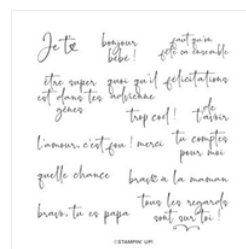 Je t'
bonjour
bébé !
faut qu'on
fête ça ensemble
être super
est dans tes
gènes
quoi qu'il
advienne
félicitations
trop cool !
de
t'avoir
l'amour, c'est fou !
merci
tu comptes
pour moi
quelle chance
bravo à la maman
bravo, tu es papa
tous les regards
sont sur toi !
©STAMPIN' UP!